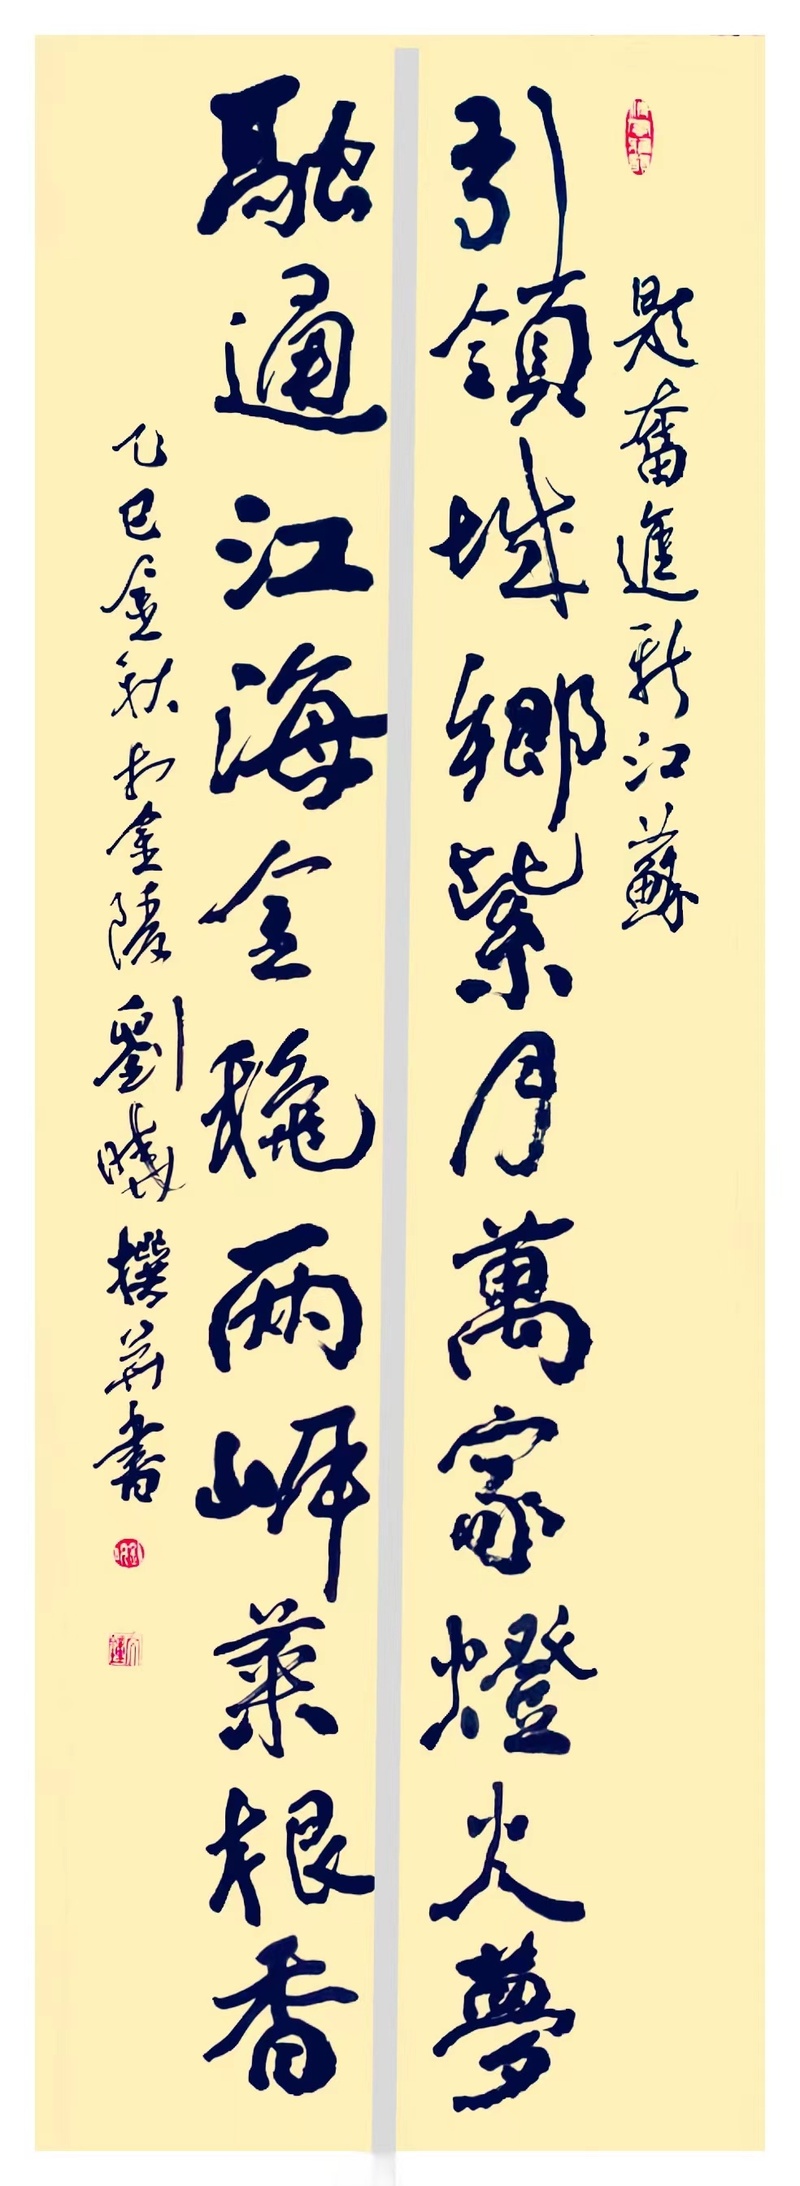 題奮進新江蘇
引領城鄉紫月萬家燈火夢
馳通江海金穐兩岸菜根香
乙巳金秋於金陵劉曉撰并書